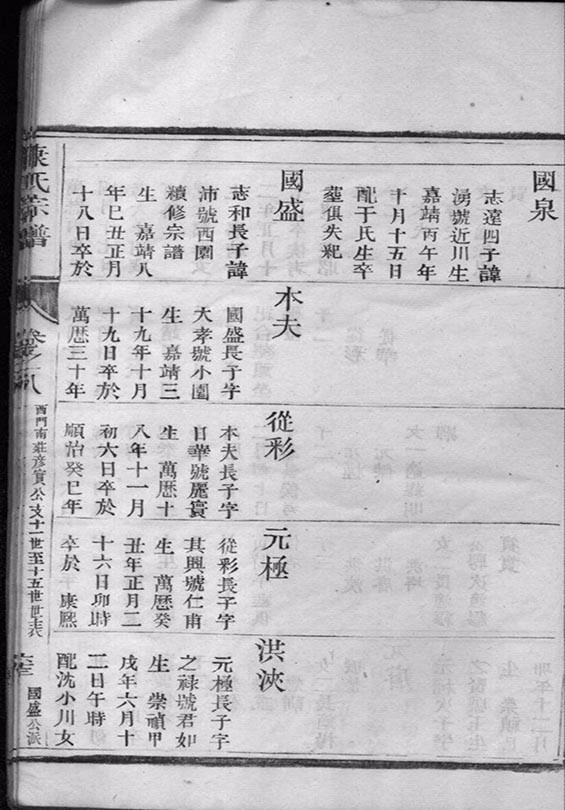 國泉
志遠四子諱
湧號近川生
嘉靖丙午年
十月十五日
配于氏生卒
塟俱失紀
國盛
志和長子諱
沛號西園
續修宗譜
生 嘉靖八
年巳丑正月
十八日卒於
木夫
國盛長子字
大孝號小園
生 嘉靖三
十九年十月
十九日卒於
萬歷三十年
從彩
木夫長子字
日華號麗寰
生 萬歷十
八年十一月
初六日卒於
順治癸巳年
元極
從彩長子字
其興號仁甫
生 萬歷癸
丑年正月二
十六日卯時
卒於 康熙
洪浹
元極長子字
之祿號君如
生 崇禎甲
戌年六月十
二日午時
配沈小川女
氏宗譜
卷之八
西門南莊彥實公支十一世至十五世世表
國盛公派